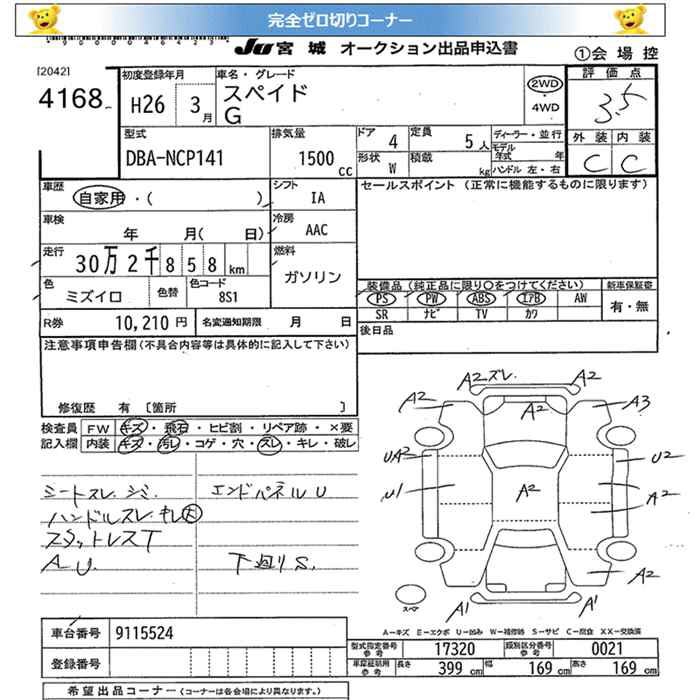 完全ゼロ切りコーナー
JU 宮城 オークション出品申込書
①会場控
[2042]
4168
初度登録年月
H26 3月
車名・グレード
スペイド
G
2WD
4WD
評価点
3.5
外装 内装
C C
型式
DBA-NCP141
排気量
1500 cc
ドア 4
定員 5人
形状 W
積載 kg
ディーラー・並行
モデル年式 年
ハンドル 左・右
車歴
自家用・( )
シフト
IA
車検
年 月( 日)
冷房
AAC
走行
30万2千858km
燃料
ガソリン
色
ミズイロ
色替
色コード
8S1
R券 10,210円
名変通知期限 月 日
セールスポイント (正常に機能するものに限ります)
装備品 (純正品に限り○をつけてください)
新車保証書
PS PW ABS エアB AW
SR ナビ TV カワ
有・無
後日品
注意事項申告欄 (不具合内容等は具体的に記入して下さい)
修復歴 有 〔箇所 〕
検査員記入欄
FW キズ・飛石・ヒビ割・リペア跡・×要
内装 キズ・汚レ・コゲ・穴・スレ・キレ・破レ
シートスレ、シミ
エンドパネルU
ハンドルスレ キレ大
スタットレスT
A U
下廻りS
A2 スレ A2
A2 A2 A3
UA2 U2
U1 A2 A2
A2
A1 A1
スペア
A-キズ E-エクボ U-凹み W-補修跡 S-サビ C-腐食 XX-交換済
車台番号 9115524
登録番号
型式指定番号 参考 17320
類別区分番号 参考 0021
車庫証明用 参考 長さ 399cm 幅 169cm 高さ 169cm
希望出品コーナー (コーナーは各会場により異なります。)